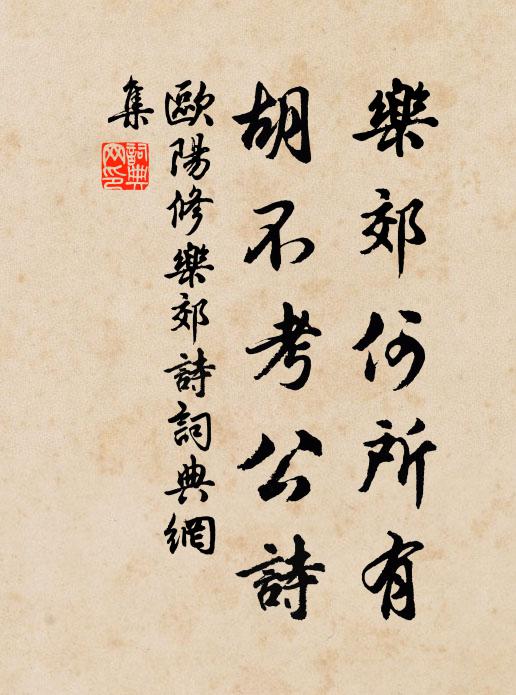 樂郊何所有
胡不考公詩
歐陽修樂郊詩詞典網
集
詞典
网印